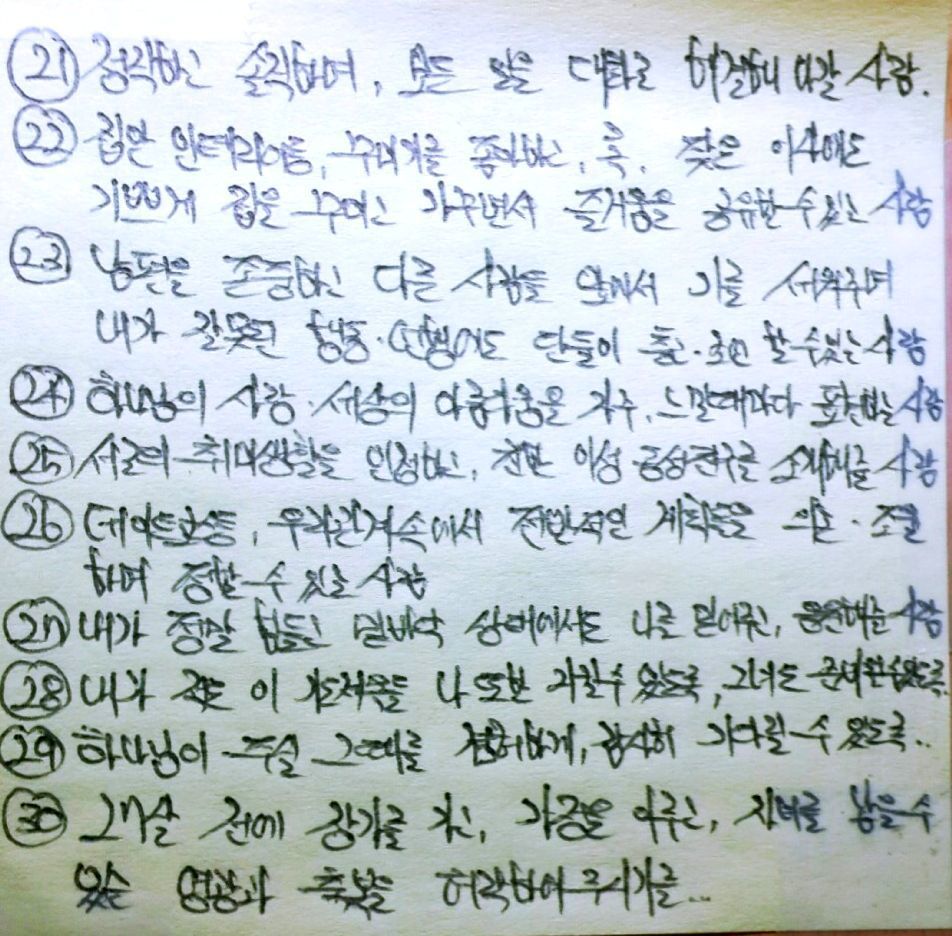 ㉑ 정직하고 솔직하며, 모든 일을 대화로 해결해 나갈 사람.
㉒ 집안 인테리어등, 꾸미기를 좋아하고, 혹, 잦은 이사에도
기쁘게 집을 꾸미고 가꾸면서 즐거움을 공유할 수 있는 사람
㉓ 남편을 존중하고 다른 사람들 앞에서 기를 세워주며
내가 잘못된 행동·언행에도 단둘이 충고·조언 할 수 있는 사람
㉔ 하나님의 사랑·세상의 아름다움을 자주, 느낄때마다 표현하는 사람
㉕ 서로의 취미생활을 인정하고, 이성 소개해줄 사람
㉖ 데이트코스등, 우리관계속에서 전반적인 계획들을 의논·조절
하며 정할 수 있는 사람
㉗ 내가 정말 힘들고 밑바닥 상태에서도 나를 믿어주고, 응원해줄 사람
㉘ 내가 적은 이 기도제목들 나 또한 행할수 있도록, 그녀도 준비할수있도록
㉙ 하나님이 주실 그때를 겸허하게, 감사히 기다릴 수 있도록..
㉚ 37살 전에 장가를 가고, 가정을 이루고, 자녀를 낳을 수
있는 영광과 축복을 허락하여 주시기를...